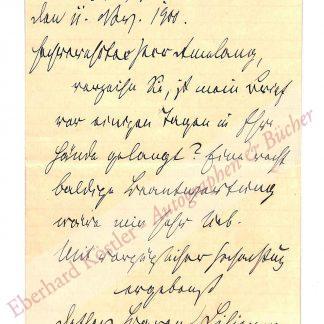 den 11. Nov. 1900.
Sehrverehrter Herr Amelang,
verzeihn Sie, ist mein Brief
vor einigen Tagen in Ihre
Hände gelangt? Eine recht
baldige Beantwortung
wäre mir sehr lieb.
Mit vorzüglicher Hochachtung
ergebenst
Detlev
Eberhard Köstler - Autographen & Bücher